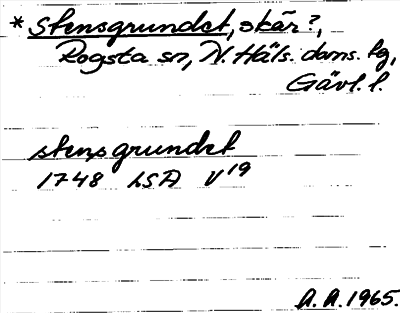 * Stensgrundet, skär?,
Rogsta sn, N. Häls. doms. hg,
Gävl. l.
stens grundet
1748 LSA V19
A. A. 1965.